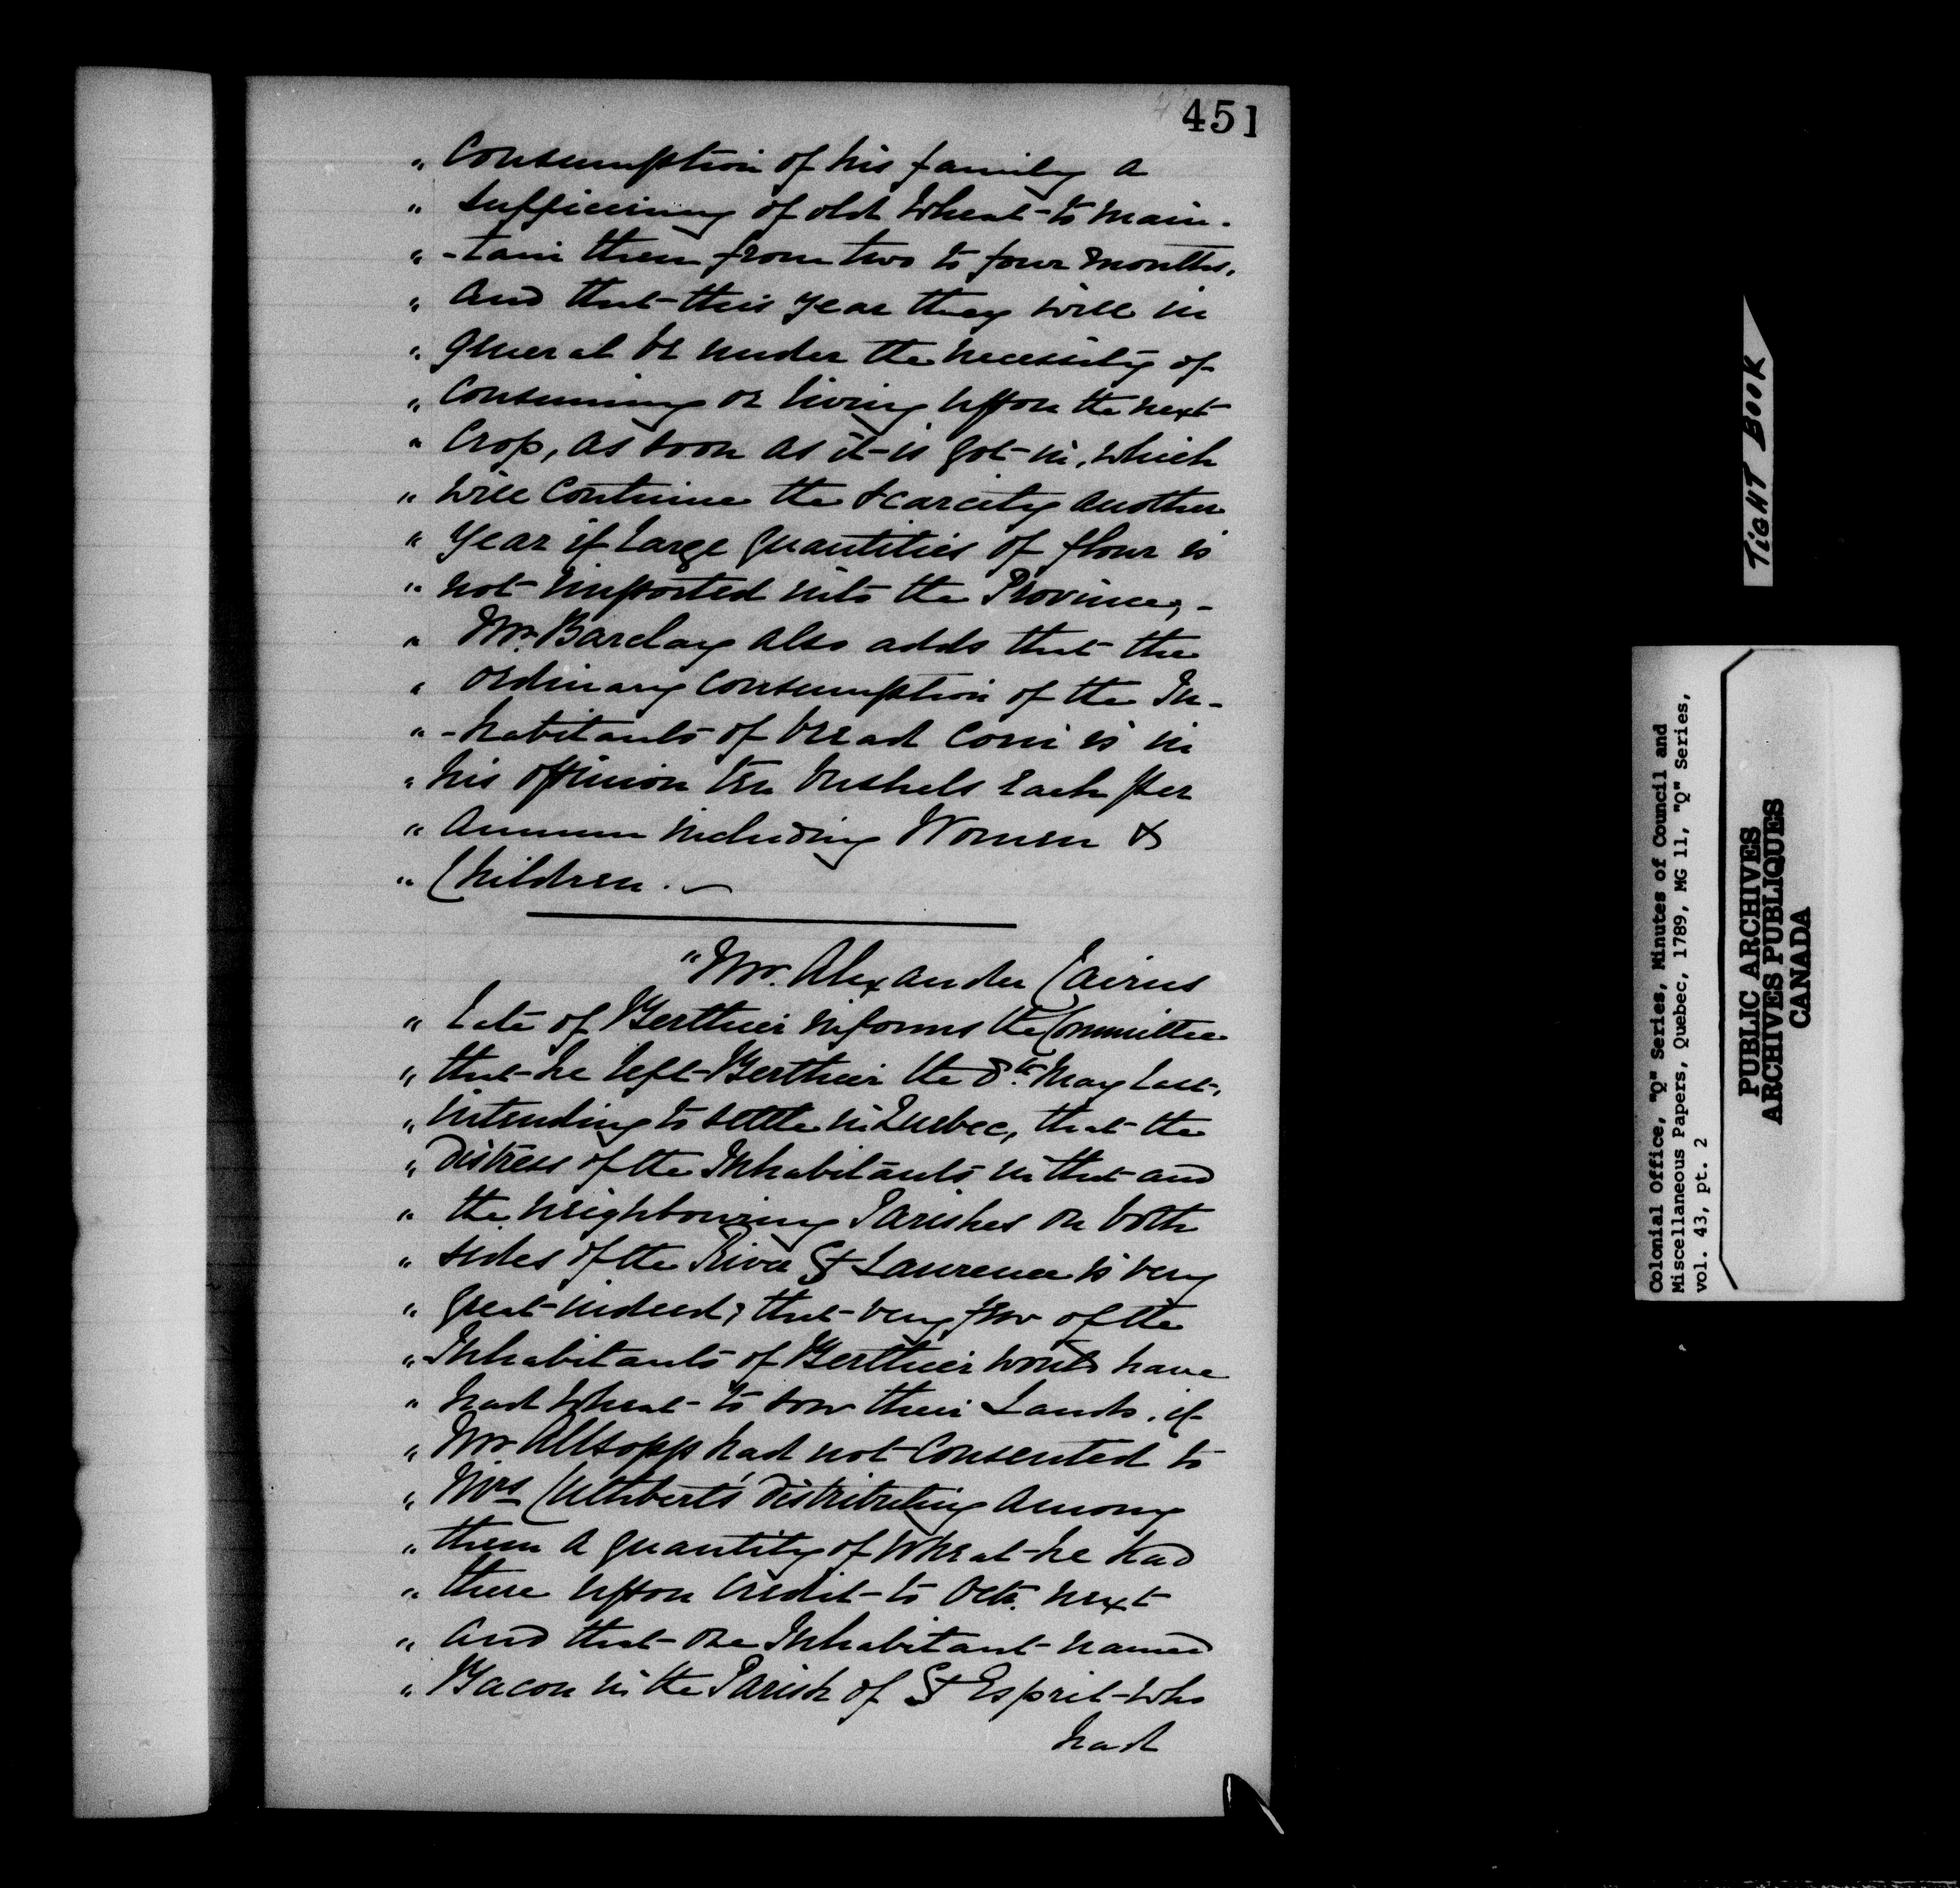 451
" Consumption of his family a
" sufficiency of old Wheat to main-
" -tain them from two to four Months,
" And that this year they will in
" general be under the necessity of
" Consuming or living upon the next
" Crop, as soon as it is got in, which
" will continue the scarcity another
" Year if large quantities of flour is
" not imported into the Province, -
" Mr. Barclay also adds that the
" ordinary consumption of the In-
" -habitants of bread Corn is in
" his opinion ten bushels each per
" Annum including Women &
" Children. -
" Mr. Alexander Cairns
" Late of Berthier informs the Committee
" that he left Berthier the 8th. May last,
" intending to settle in Quebec, that the
" distress of the Inhabitants in that and
" the neighbouring Parishes on both
" sides of the River St Laurence is very
" great indeed; that very few of the
" Inhabitants of Berthier would have
" had Wheat to sow their Lands, if
" Mr Allsopp had not consented to
" Mrs Cuthbert's distributing among
" them a quantity of Wheat he had
" there upon Credit to Octr. next
" And that one Inhabitant named
" Bacon in the Parish of St Esprit who
had
TIGHT BOOK
Colonial Office, "Q" Series, Minutes of Council and
Miscellaneous Papers, Quebec, 1789, MG 11, "Q" Series,
vol. 43, pt. 2
PUBLIC ARCHIVES
ARCHIVES PUBLIQUES
CANADA